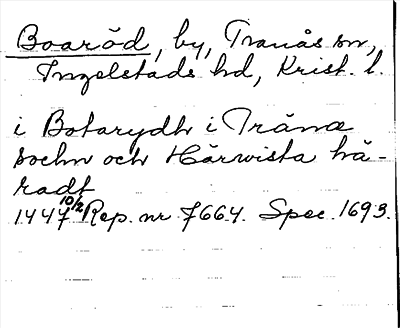 Boaröd, by, Tranås sn,
Ingelstads hd, Krist. l.
i Botarydh i Trånæ
sochn och Härwista hä-
radt
1447 10/2 Rep. nr 7664. Spec. 1693.